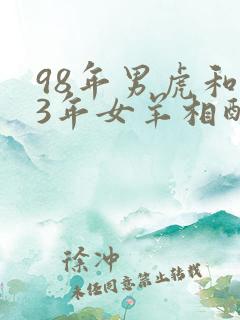 98年男虎和
3年女羊相配
徐冲
未经同意禁止转载